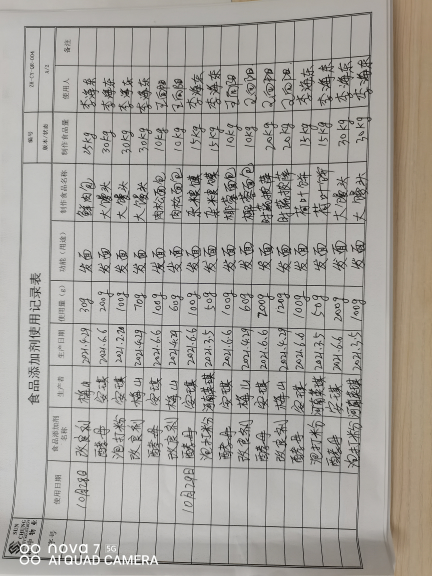 食品添加剂使用记录表
编号 ZH-CY-QR-004
版本/状态 A/1
序号 使用日期 食品添加剂名称 生产者 生产日期 使用量（g） 功能（用途） 制作食品名称 制作食品量 使用人 备注
10月28日 改良剂 梅山 2021.4.29 30g 发面 鲜肉包 25kg 李海东
酵母 安琪 2021.6.6 200g 发面 大馒头 30kg 李海东
泡打粉 安琪 2021.2.28 100g 发面 大馒头 30kg 李海东
改良剂 梅山 2021.4.29 70g 发面 大馒头 30kg 李海东
酵母 安琪 2021.6.6 100g 发面 肉松面包 10kg 王向阳
改良剂 梅山 2021.4.29 60g 发面 肉松面包 10kg 王向阳
10月29日 酵母 安琪 2021.6.6 100g 发面 杂粮馍 15kg 李海东
泡打粉 2021.3.5 50g 发面 杂粮馍 15kg 李海东
酵母 安琪 2021.6.6 100g 发面 椰蓉面包 10kg 王向阳
改良剂 梅山 2021.4.29 60g 发面 椰蓉面包 10kg 王向阳
酵母 安琪 2021.6.6 200g 发面 时蔬披萨 20kg 王向阳
改良剂 梅山 2021.4.29 120g 发面 时蔬披萨 20kg 王向阳
酵母 安琪 2021.6.6 100g 发面 荷叶饼 15kg 李海东
泡打粉 2021.3.5 50g 发面 荷叶饼 15kg 李海东
酵母 安琪 2021.6.6 200g 发面 大馒头 30kg 李海东
泡打粉 2021.3.5 100g 发面 大馒头 30kg 李海东
nova 7 5G
AI QUAD CAMERA